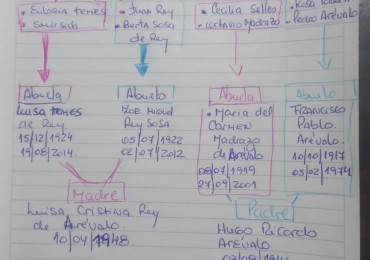 • Eulogia TEMES
• Juan Rey
• Berta SOSA
de Rey
• Cecilia
Madrazo
Pedro Arévalo
Abuela
Luisa TEMES
de Rey
15/12/1924
19/08/2014
Abuelo
Rey SOSA
05/07/1922
02/07/2012
Abuela
• Maria del
CARMEN
Madrazo
de Arévalo
08/07/1919
27/09/2001
Abuelo
FRANCISCO
Pablo
Arévalo
10/10/1917
05/02/1974
Madre
Luisa, Cristina Rey
de Arévalo
10/04/1948
Padre
Hugo Ricardo
Arévalo